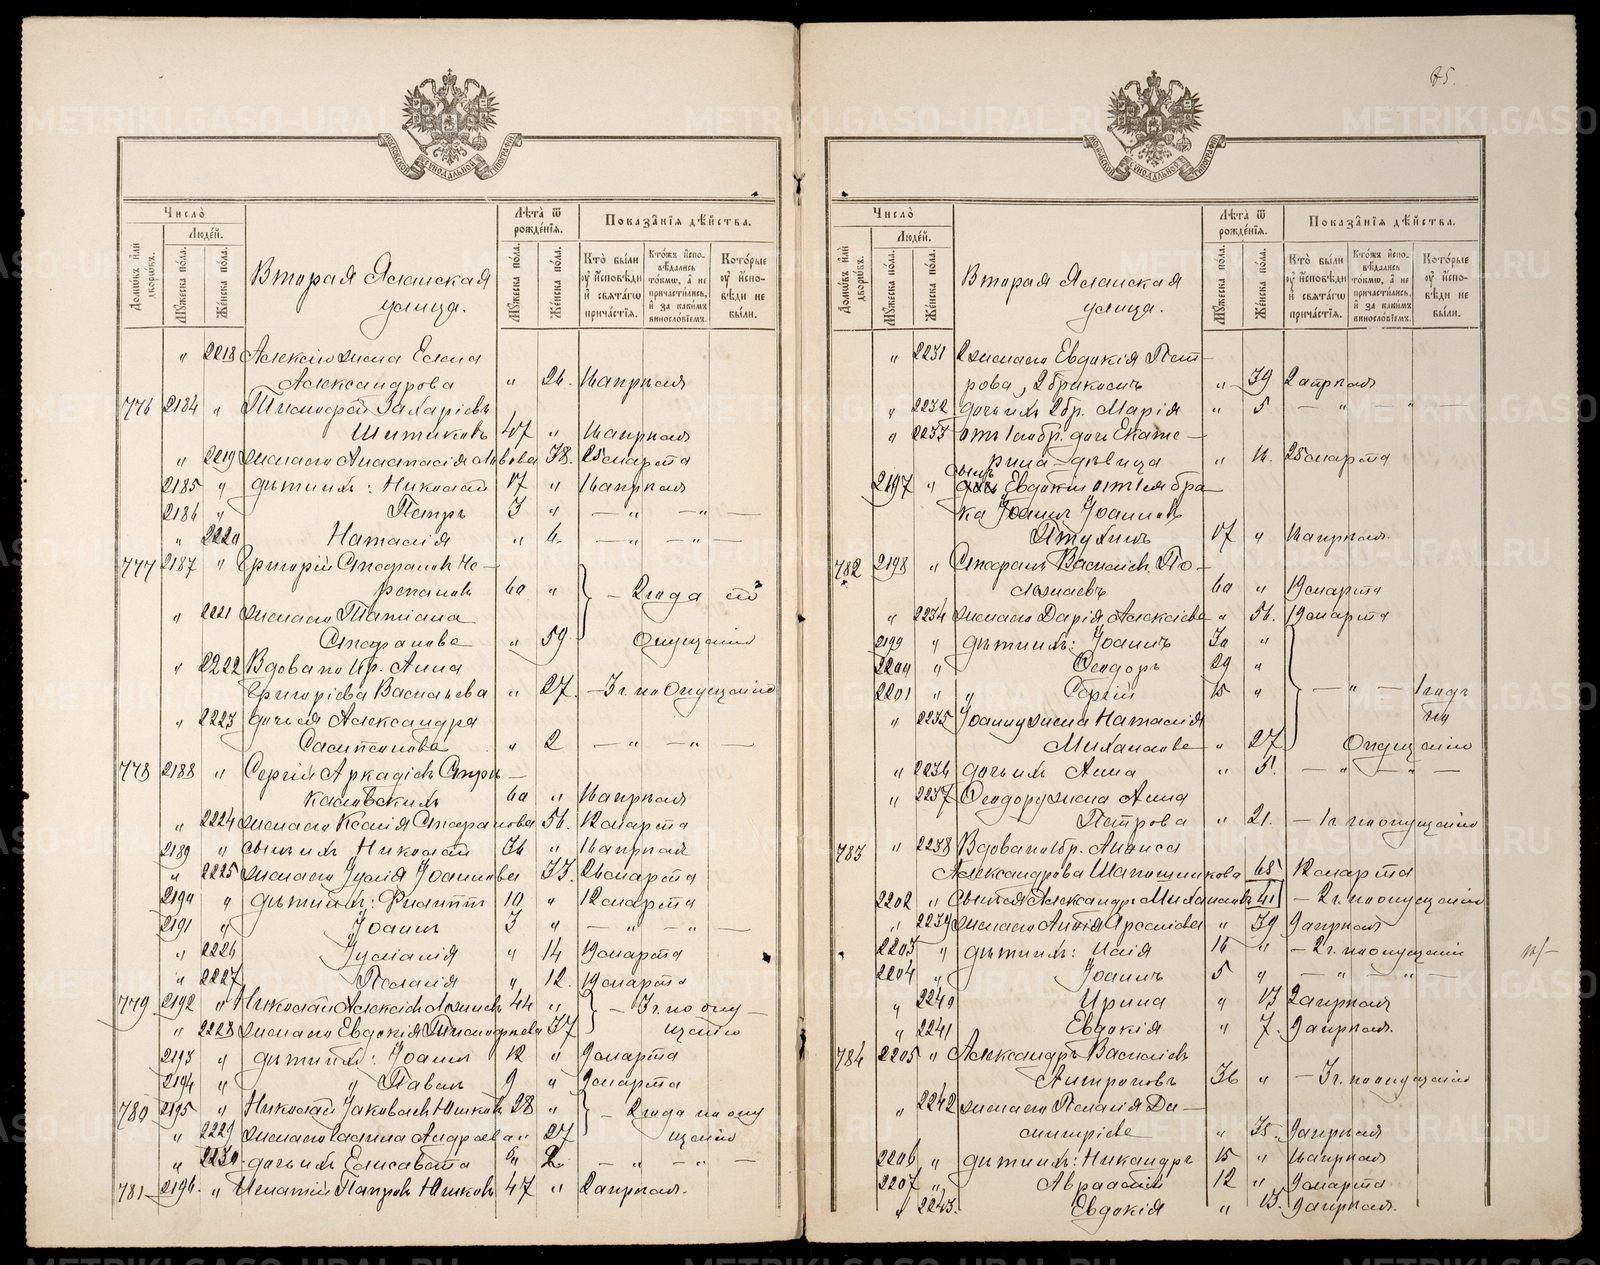 85.
МОСКОВСКОЙ СѴНОДАЛЬНОЙ ТИПОГРАФІИ
Число̀
Лѣта̀ ѿ рожде́нїѧ.
Показа̑нїѧ дѣ́йства.
Домѡ́въ и҆лѝ дворѡ́въ.
Люде́й.
Мꙋ́жеска по́ла.
Же́нска по́ла.
Вторая Ясаиская
улица.
Мꙋ́жеска по́ла.
Же́нска по́ла.
Кто̀ бы́ли ᲂу҆ и҆сповѣ́ди и҆ свѧта́гѡ прича́стїѧ.
Кто́жъ и҆спо-вѣ́дались то́кмѡ, а҆ не причасти́лись, и҆ за каки́мъ виносло́вїемъ.
Кото́рые ᲂу҆ и҆спо-вѣ́ди не бы́ли.
" 2218 Алексію жена Елена
Александрова " 26. 16 апрѣля
776 2184 " Тимофей Захаріевъ
Шитиковъ 47 " 16 апрѣля
" 2219 жена его Анастасія Львова 38. 25 марта
2185 " дѣти ихъ: Николай 17 " 16 апрѣля
2186 " Петръ 3 " — " — " —
" 2220 Наталія " 6. — " — " —
777 2187 " Григорій Стефановъ Че-
репановъ 60 " — 2 года по
" 2221 жена его Татіана
Стефанова " 59 опущенію
" 2222 Вдова по бр. Анна
Григоріева Васильева " 27. — 3 г. по опущенію
" 2223 дочь ея Александра
Сампсонова " 2 — " — " —
778 2188 " Сергій Аркадіевъ Стри-
жаловскихъ 60 " 16 апрѣля
" 2224 жена его Ксенія Стефанова 56. 12 марта
2189 " сынъ ихъ Николай 36 " 16 апрѣля
" 2225 жена его Іулія Іоаннова 33. 26 марта
2190 " дѣти ихъ: Филиппъ 10 " 12 марта
2191 " Іоаннъ 3 " — " — " —
" 2226 Іуліанія " 14 19 марта
" 2227 Пелагія " 12. 19 марта
779 2192 " Николай Алексіевъ 44 " — 3 г. по опу-
" 2228 жена его Евдокія Тимофеева 37 щенію
2193 " дѣти ихъ: Іоаннъ 12 " 9 марта
2194 " " Павелъ 9 " 9 марта
780 2195 " Николай Іаковлевъ Юшковъ 28 " — 2 года по опу
" 2229 жена его Андреева " 27 щенію
" 2230. дочь ихъ Елисавета " 2. — " — " —
781 2196. " Игнатій Петровъ Юшковъ 47 " 2 апрѣля.
Число̀
Лѣта̀ ѿ рожде́нїѧ.
Показа̑нїѧ дѣ́йства.
Домѡ́въ и҆лѝ дворѡ́въ.
Люде́й.
Мꙋ́жеска по́ла.
Же́нска по́ла.
Вторая Ясаиская
улица.
Мꙋ́жеска по́ла.
Же́нска по́ла.
Кто̀ бы́ли ᲂу҆ и҆сповѣ́ди и҆ свѧта́гѡ прича́стїѧ.
Кто́жъ и҆спо-вѣ́дались то́кмѡ, а҆ не причасти́лись, и҆ за каки́мъ виносло́вїемъ.
Кото́рые ᲂу҆ и҆спо-вѣ́ди не бы́ли.
" 2231 жена его Евдокія Пет-
рова, 2 бракомъ " 39 2 апрѣля
" 2232 дочь ихъ 2 бр. Марія " 5 — " — " —
" 2233 отъ 1 его бр. дочь Екате-
рина - дѣвица " 16. 25 марта
2197 " сынъ Евдокіи отъ 1 ея бра-
ка Іоаннъ Іоанновъ
17 " 16 апрѣля.
782 2198 " Стефанъ Васильевъ По-
60 " 19 марта
" 2234 жена его Дарія Алексіева " 56. 19 марта
2199 " дѣти ихъ: Іоаннъ 30 "
2200 " Ѳеодоръ 29 "
2201 " " Сергій 15 " — " — 1 годъ
" 2235 Іоанну жена Наталія по
Михайлова " 27 опущенію
" 2236 дочь ихъ Анна " 5. — " — " —
" 2237 Ѳеодору жена Анна
Петрова " 21. — 1 г. по опущенію
783 " 2238 Вдова по 1 бр. Анисія
Александрова Шапошникова 65 12 марта
2202 " Сынъ ея Александръ Михайловъ 41 — 2 г. по опущенію
" 2239 жена его 39 9 апрѣля
2203 " дѣти ихъ: Илія 16 " — 2 г. по опущенію
2204 " Іоаннъ 5 " — " — " —
" 2240 Ирина " 13 2 апрѣля
" 2241 Евдокія " 7. 9 апрѣля.
784 2205 " Александръ Васильевъ
Антроповъ 36 " — 3 г. по опущенію
" 2242 жена его Пелагія Ди-
митріева " 35. 9 апрѣля
2206 " дѣти ихъ: Никандръ 15 " 16 апрѣля
2207 " Авраамій 12 " 9 марта
" 2243. Евдокія " 13. 9 апрѣля.
METRIKI.GASO-URAL.RU